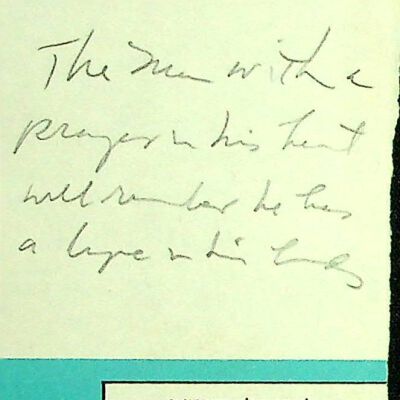 The Man with a
prayer in his heart
will remember he has
a hope in his hands